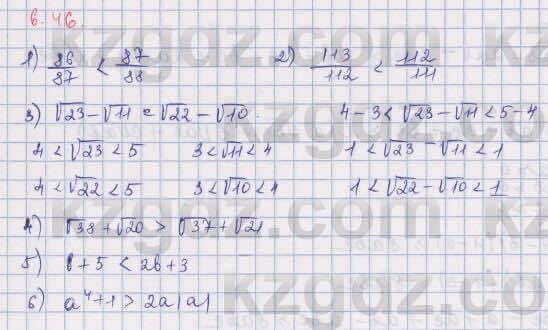 6.46.
1) 86/87 < 87/88   2) 113/112 < 112/111
3) √23 - √11 < √22 - √10.   4 - 3 < √23 - √11 < 5 - 4
4 < √23 < 5   3 < √11 < 4   1 < √23 - √11 < 1
4 < √22 < 5   3 < √10 < 4   1 < √22 - √10 < 1
4) √38 + √20 > √37 + √21
5) b + 5 < 2b + 3
6) a⁴ + 1 > 2a|a|
kzgdz.com